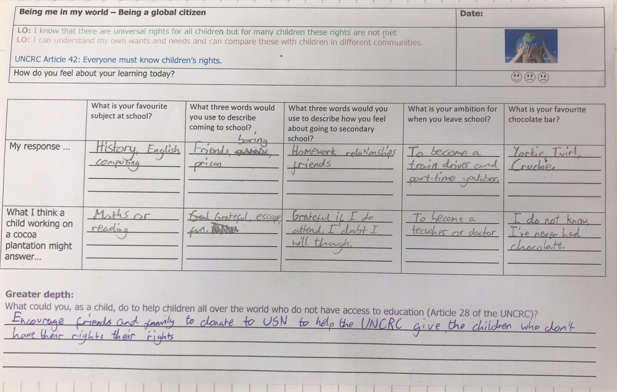 Being me in my world – Being a global citizen
Date:
LO: I know that there are universal rights for all children but for many children these rights are not met
LO: I can understand my own wants and needs and can compare these with children in different communities.
UNCRC Article 42: Everyone must know children's rights.
How do you feel about your learning today?
What is your favourite
subject at school?
What three words would
you use to describe
coming to school?
What three words would you
use to describe how you feel
about going to secondary
school?
What is your ambition for
when you leave school?
What is your favourite
chocolate bar?
My response ...
History, English
computing
boring
Friends
prison
Homework relationships
friends
To become a
train driver and
part-time youtuber.
Yorkie, Twirl,
Crunchie.
What I think a
child working on
a cocoa
plantation might
answer...
Maths or
reading
Grateful, escape,
fun.
Grateful if I do
attend, I doubt I
will though.
To become a
teacher or doctor
I do not know,
I've never had
chocolate.
Greater depth:
What could you, as a child, do to help children all over the world who do not have access to education (Article 28 of the UNCRC)?
Encourage friends and family to donate to USN to help the UNCRC give the children who don't
have their rights their rights